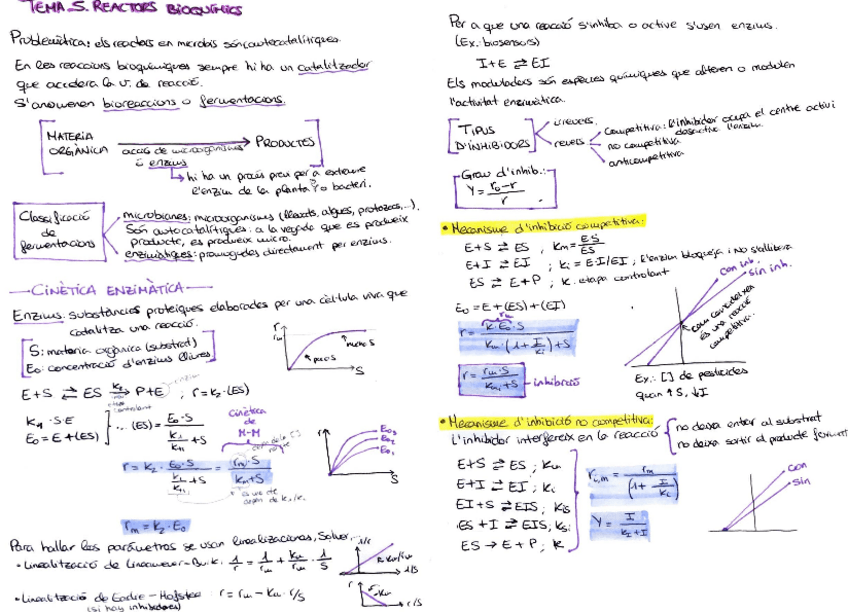 TEMA 5. REACTORS BIOQUÍMICS
Problemàtica: els reactors en microbis són autocatalítiques.
En les reaccions bioquímiques sempre hi ha un catalitzador
que accelera la v. de reacció.
S'anomenen bioreaccions o fermentacions.
MATERIA ORGÀNICA → PRODUCTES
acció de microorganismes
o enzims
hi ha un procés previ per a extreure
l'enzim de la planta o bacteri.
Classificació de fermentacions
microbianes: microorganismes (llevats, algues, protozous,...).
Són autocatalítiques: a la vegada que es produeix
producte, es produeix micro.
enzimàtiques: promogudes directament per enzims.
CINÈTICA ENZIMÀTICA
Enzims: substàncies proteiques elaborades per una cèl·lula viva que
catalitza una reacció.
S: materia orgànica (substrat)
E0: concentració d'enzims lliures
r
rm
poco S
mucho S
S
E+S ⇄ ES → P+E ; r=k2·(ES)
k2
controlant
KM·S·E
E0=E+(ES)
(ES)= E0·S / +S
Cinètica de M-M
r = k2· E0·S / +S = rm·S / km+S
r
E03
E02
E01
S
rm = k2·E0
Para hallar los parámetros se usan linealizaciones, Solver...
• Linealització de Lineweaver-Burk: 1/r = 1/rm + km/rm · 1/S
1/r
1/S
• Linealización de Eadie-Hofstee r = rm - km·r/S
(si hay inhibidores)
r
-km
r/S
Per a que una reacció s'inhiba o active s'usen enzims.
(Ex. biosensors)
I+E ⇄ EI
Els moduladors són espècies químiques que alteren o modulen
l'activitat enzimàtica.
TIPUS D'INHIBIDORS
irrevers.
revers
competitiva: l'inhibidor ocupa el centre actiu
desactiva l'enzim
no competitiva
anticompetitiva
Grau d'inhib.:
Y = r0-r / r
• Mecanisme d'inhibició competitiva:
E+S ⇄ ES , km = E·S / ES
E+I ⇄ EI ; ki = E·I/EI ; l'enzim bloqueja i no s'allibera
ES ⇄ E+P ; k. etapa controlant
E0 = E+(ES)+(EI)
rm
r = k·E0·S / km·(1+ I/ki)+S
r = rm·S / km,i+S
inhibició
con inh.
sin inh.
es una reacció
competitiva.
Ex.: [] de pesticides
quan ↑S, ↓I
• Mecanisme d'inhibició no competitiva:
L'inhibidor interfereix en la reacció
no deixa entrar al substrat
no deixa sortir al producte format
E+S ⇄ ES ; km
E+I ⇄ EI ; ki
EI+S ⇄ EIS; kis
ES+I ⇄ EIS; ksi
ES → E+P ; k
ri,m = rm / (1+ I/ki)
Y = I / ki+I
con
sin